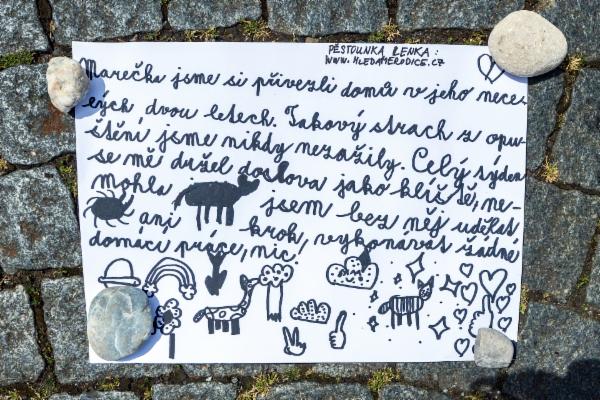 PĚSTOUNKA LENKA:
WWW.HLEDAMERODICE.CZ
Marečka jsme si přivezli domů v jeho nece-
lých dvou letech. Takový strach z opu-
štění jsme nikdy nezažily. Celý týden
se mě držel doslova jako klíště, ne-
mohla jsem bez něj udělat
ani krok, vykonávat žádné
domácí práce, nic.